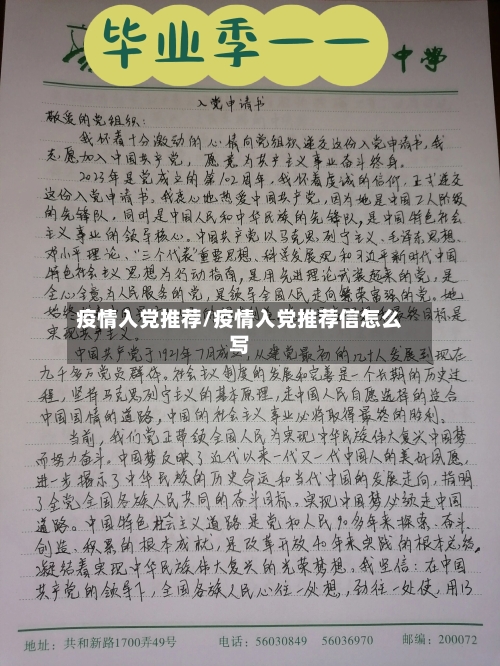 毕业季一一
中学
入党申请书
敬爱的党组织：
我怀着十分激动的心情向党组织递交这份入党申请书，我
志愿加入中国共产党，愿意为共产主义事业奋斗终身。
2023年是党成立的第102周年，我怀着虔诚的信仰，正式递交
这份入党申请书。我衷心地热爱中国共产党，因为她是中国工人阶级
的先锋队，同时是中国人民和中华民族的先锋队，是中国特色社会
主义事业的领导核心。中国共产党以马克思列宁主义、毛泽东思想、
邓小平理论、"三个代表"重要思想、科学发展观和习近平新时代中国
特色社会主义思想为行动指南，是用先进理论武装起来的党，是
全心全意为人民服务的党，是领导全国人民走向繁荣富强的党。她
最终目标是
疫情入党推荐/疫情入党推荐信怎么
写
中国共产党于1921年7月成立，从建党最初的几十人发展到现在
九千多万党员群体。社会主义制度的发展和完善是一个长期的历史过
程，坚持马克思列宁主义的基本原理，走中国人民自愿选择的适合
中国国情的道路，中国的社会主义事业必将取得最终的胜利。
当前，我们党正带领全国人民为实现中华民族伟大复兴中国梦
而努力奋斗。中国梦反映了近代以来一代又一代中国人的美好夙愿，
进一步揭示了中华民族的历史命运和当代中国的发展走向，指明
了全党全国各族人民共同的奋斗目标。实现中国梦必须走中国
道路。中国特色社会主义道路是党和人民90多年来探索、奋斗、
创造、积累的根本成就，是改革开放40年来实践的根本总结，
凝结着实现中华民族伟大复兴的光荣梦想。我坚信：在中国
共产党的领导下，全国各族人民心往一处想，劲往一处使，用13
地址：共和新路1700弄49号 电话：56030849 56036970 邮编：200072